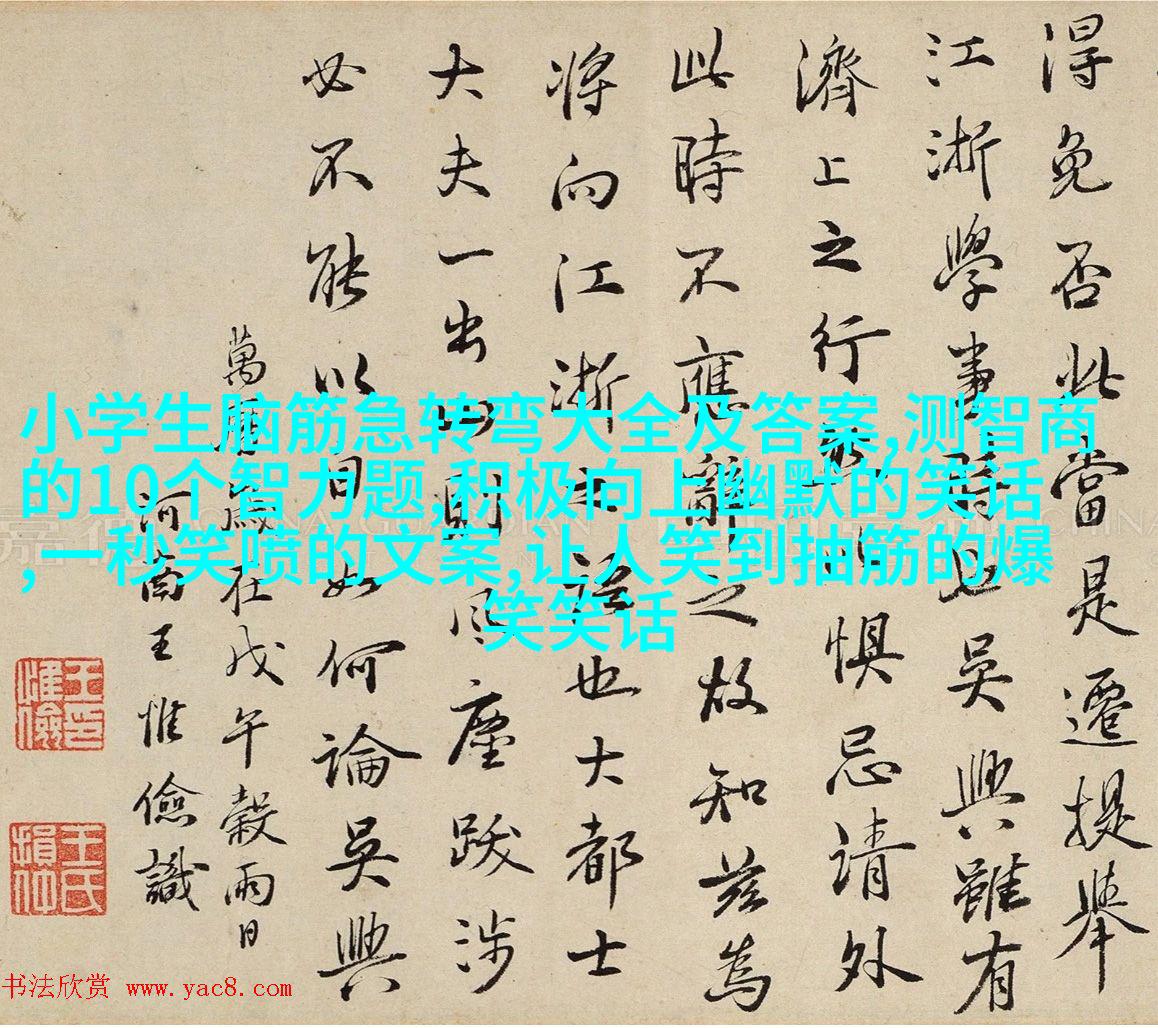 得免否此當是遷提舉
江浙學事時也吳興雖有
濟上之行此惧忌請外
此時不應辭之故知茲為
將向江浙也大都士
大夫一出山則風塵跋涉
必不能以自如何論吳興
萬曆歲在戊午穀雨日
河南王惟儉識
王印惟儉
王氏損仲
小学生脑筋急转弯大全及答案,测智商
的10个智力题,积极向上幽默的笑话
,一秒笑喷的文案,让人笑到抽筋的爆
笑笑话
嘉德 CHINA GUARDIAN
书法欣赏 www.yac8.com